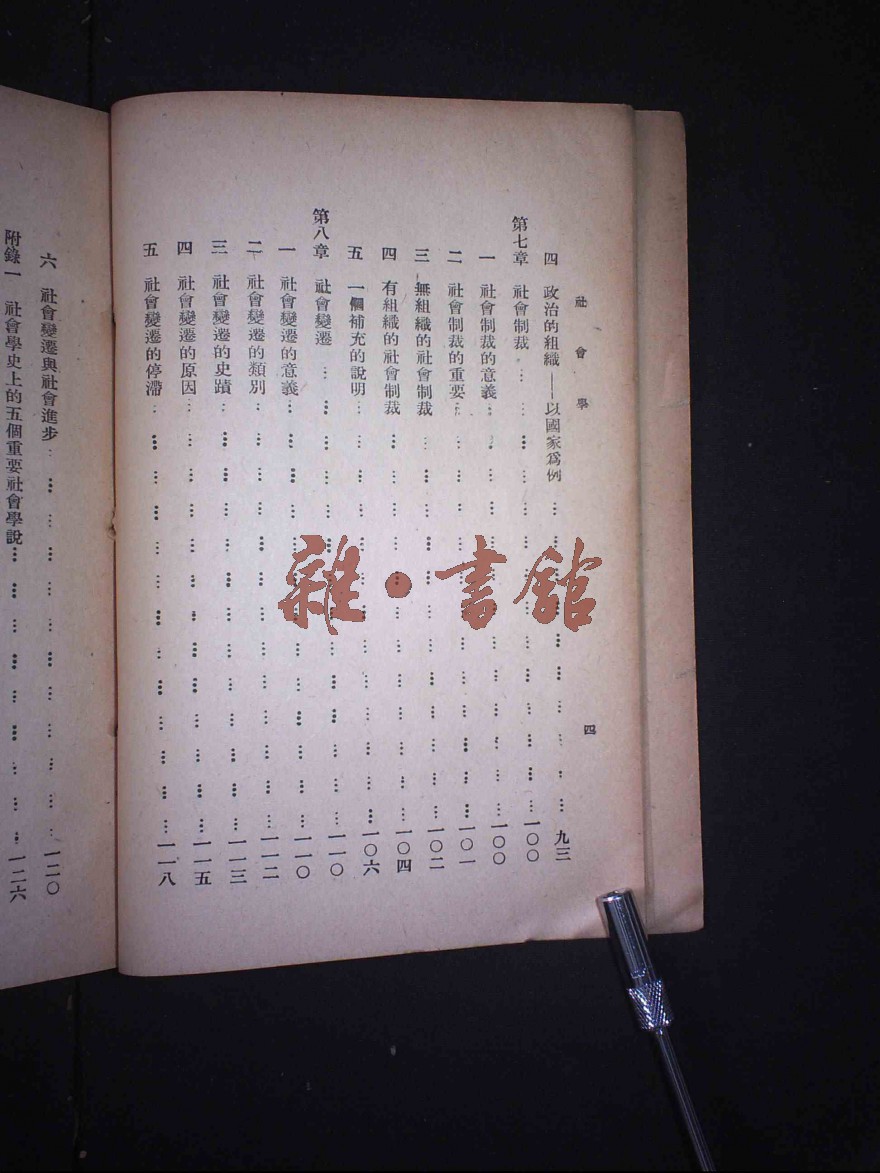 社會學
四
四 政治的組織——以國家爲例 九三
第七章 社會制裁 一〇〇
一 社會制裁的意義 一〇〇
二 社會制裁的重要 一〇一
三 無組織的社會制裁 一〇二
四 有組織的社會制裁 一〇四
五 一個補充的說明 一〇六
第八章 社會變遷 一一〇
一 社會變遷的意義 一一〇
二 社會變遷的類別 一一二
三 社會變遷的史蹟 一一三
四 社會變遷的原因 一一五
五 社會變遷的停滯 一一八
六 社會變遷與社會進步 一二〇
附錄一 社會學史上的五個重要社會學說 一二六
雜·書館